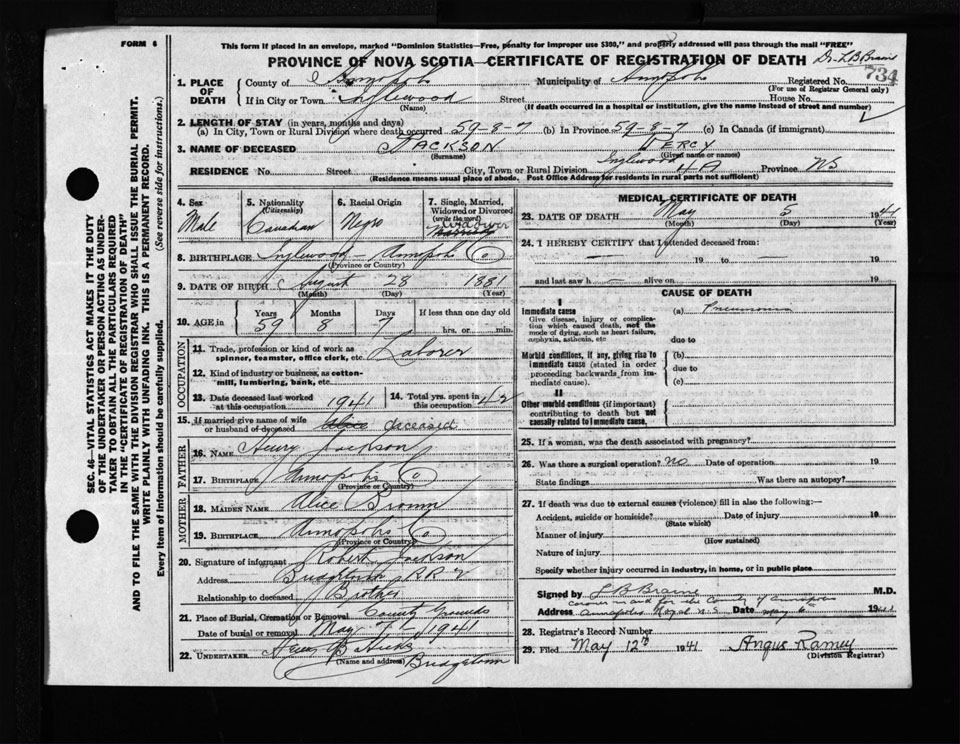 FORM 6
This form if placed in an envelope, marked "Dominion Statistics—Free, penalty for improper use $300," and properly addressed will pass through the mail "FREE"
PROVINCE OF NOVA SCOTIA—CERTIFICATE OF REGISTRATION OF DEATH
Dr L B Braine
734
1. PLACE OF DEATH County of Annapolis Municipality of Annapolis Registered No.
(For use of Registrar General only)
If in City or Town Inglewood Street House No.
(Name) (If death occurred in a hospital or institution, give the name instead of street and number)
2. LENGTH OF STAY (in years, months and days)
(a) In City, Town or Rural Division where death occurred 59-8-7 (b) In Province 59-8-7 (c) In Canada (if immigrant)
3. NAME OF DECEASED JACKSON PERCY
(Surname) (Given name or names)
RESIDENCE No. Street City, Town or Rural Division Inglewood Province NS
(Residence means usual place of abode. Post Office Address for residents in rural parts not sufficient)
4. Sex
Male
5. Nationality
(Citizenship)
Canadian
6. Racial Origin
Negro
7. Single, Married, Widowed or Divorced
(write the word)
Widower
Married
8. BIRTHPLACE Inglewood - Annapolis
(Province or Country)
9. DATE OF BIRTH August 28 1881
(Month) (Day) (Year)
10. AGE in Years Months Days If less than one day old
59 8 7 hrs. or min.
OCCUPATION
11. Trade, profession or kind of work as spinner, teamster, office clerk, etc. Laborer
12. Kind of industry or business, as cotton-mill, lumbering, bank, etc.
13. Date deceased last worked at this occupation 1941
14. Total yrs. spent in this occupation 42
15. If married give name of wife or husband of deceased deceased
FATHER
16. NAME Henry Jackson
17. BIRTHPLACE Annapolis
(Province or Country)
MOTHER
18. MAIDEN NAME Alice Brown
19. BIRTHPLACE Annapolis
(Province or Country)
20. Signature of informant Robert Jackson
Address Bridgetown RR 2
Relationship to deceased Brother
21. Place of Burial, Cremation or Removal County Grounds
Date of burial or removal May 7 - 1941
22. UNDERTAKER Henry B Hicks
(Name and address) Bridgetown
MEDICAL CERTIFICATE OF DEATH
23. DATE OF DEATH May 5 1941
(Month) (Day) (Year)
24. I HEREBY CERTIFY that I attended deceased from:
— 19 to — 19
and last saw h alive on 19
CAUSE OF DEATH
I
Immediate cause
Give disease, injury or complication which caused death, not the mode of dying, such as heart failure, asphyxia, asthenia, etc
(a) Pneumonia
due to
Morbid conditions, if any, giving rise to immediate cause (stated in order proceeding backwards from immediate cause).
(b)
due to
(c)
II
Other morbid conditions (if important) contributing to death but not causally related to immediate cause.
25. If a woman, was the death associated with pregnancy?
26. Was there a surgical operation? No Date of operation 19
State findings Was there an autopsy?
27. If death was due to external causes (violence) fill in also the following:—
Accident, suicide or homicide? Date of injury 19
(State which)
Manner of injury
(How sustained)
Nature of injury
Specify whether injury occurred in industry, in home, or in public place
Signed by L B Braine M.D.
coroner in and for the County of Annapolis
Address Annapolis Royal N.S Date May 6th 1941
28. Registrar's Record Number
29. Filed May 12th 1941 Angus Ramey
(Division Registrar)
SEC. 46—VITAL STATISTICS ACT MAKES IT THE DUTY
OF THE UNDERTAKER OR PERSON ACTING AS UNDERTAKER TO OBTAIN ALL THE PARTICULARS REQUIRED
IN THE "CERTIFICATE OF REGISTRATION OF DEATH"
AND TO FILE THE SAME WITH THE DIVISION REGISTRAR WHO SHALL ISSUE THE BURIAL PERMIT.
WRITE PLAINLY WITH UNFADING INK. THIS IS A PERMANENT RECORD.
Every item of information should be carefully supplied. (See reverse side for instructions.)